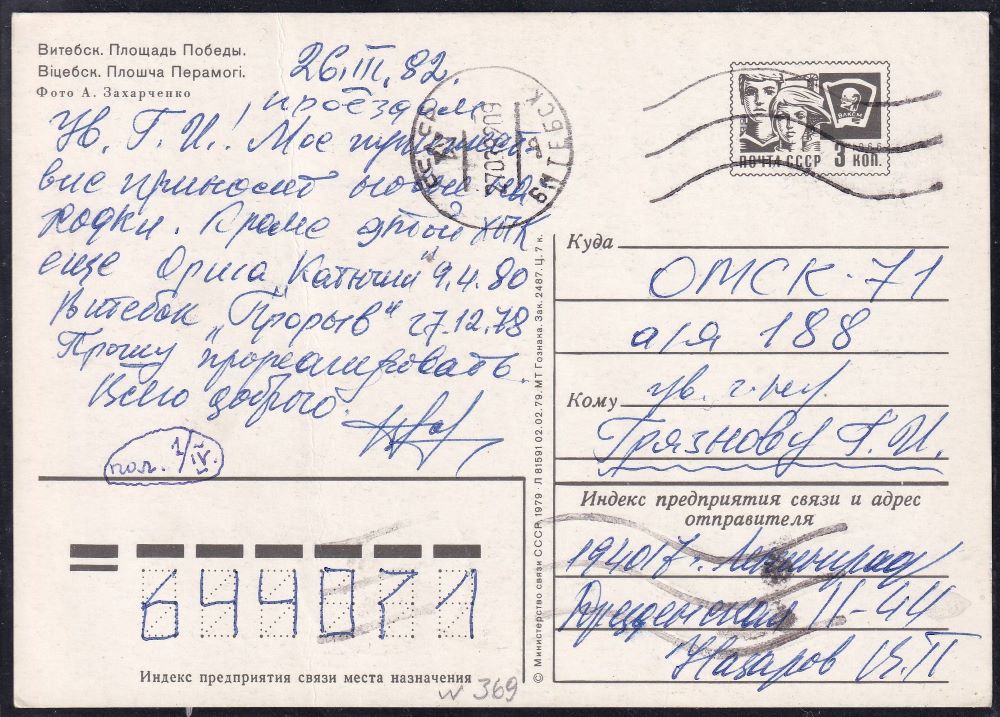 Витебск. Площадь Победы.
Віцебск. Плошча Перамогі.
Фото А. Захарченко
26.III.82.
проездом
Ув. Г. И.! Мое путешест-
вие приносит новые на
ходки. Кроме этой ХПК
еще Орша „Катюши" 9.4.80
Витебск „Прорыв" 27.12.78
Прошу прореагировать.
Всего доброго.
пол. 1/IV.
ВЛКСМ
1966
ПОЧТА СССР 3 КОП.
ВИТЕБСК
Куда ОМСК-71
а/я 188
Кому ув. г-ну
Грязнову Г. И.
Индекс предприятия связи и адрес
отправителя
194017. Ленинград
Дрезденская 11-44
Назаров В.П
644071
Индекс предприятия связи места назначения
N 369
© Министерство связи СССР, 1979 · Л 81591 02.02.79. МТ Гознака. Зак. 2487. Ц. 7 к.